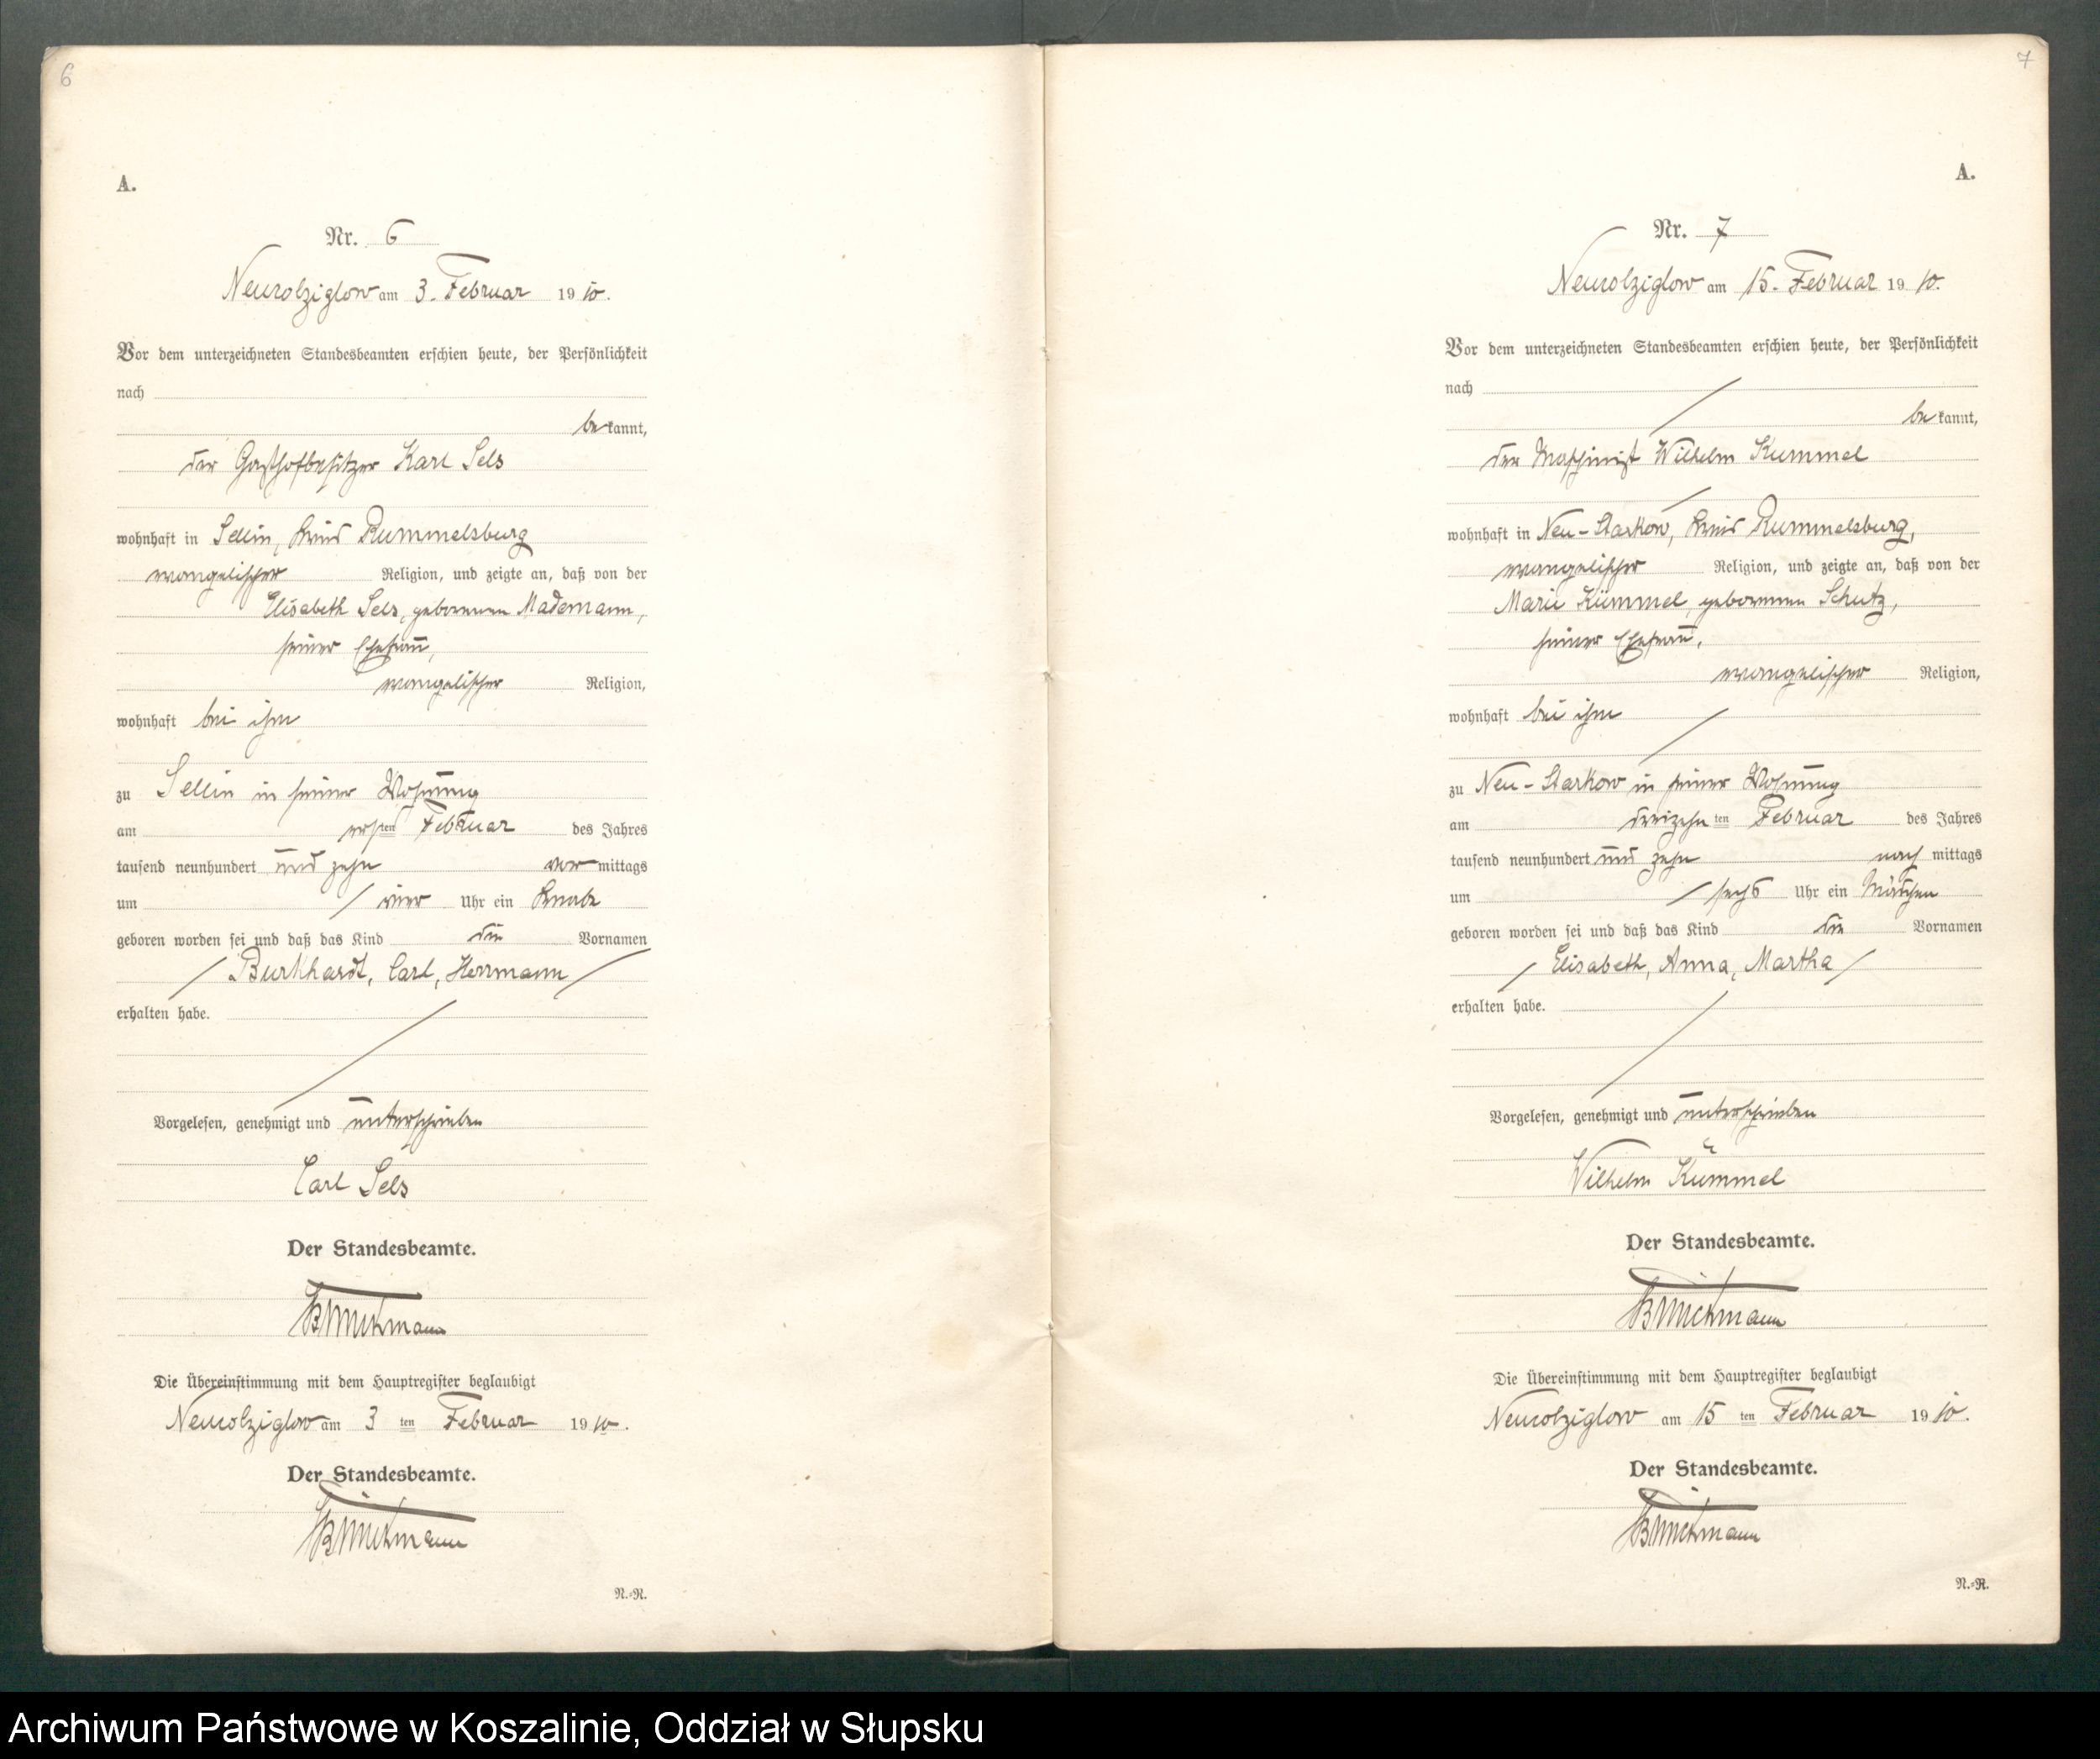 6
A.
Nr. 6
Neukolziglow am 3. Februar 1910.
Vor dem unterzeichneten Standesbeamten erschien heute, der Persönlichkeit
nach
bekannt,
der Gasthofbesitzer Karl Sels
wohnhaft in Sellin, Kreis Rummelsburg
evangelischer Religion, und zeigte an, daß von der
Elisabeth Sels, geborenen Mademann,
seiner Ehefrau,
evangelischer Religion,
wohnhaft bei ihm
zu Sellin in seiner Wohnung
am ersten Februar des Jahres
tausend neunhundert und zehn vormittags
um / vier Uhr ein Knabe
geboren worden sei und daß das Kind die Vornamen
/ Burkhardt, Carl, Herrmann /
erhalten habe.
Vorgelesen, genehmigt und unterschrieben
Carl Sels
Der Standesbeamte.
Die Übereinstimmung mit dem Hauptregister beglaubigt
Neukolziglow am 3 ten Februar 1910.
Der Standesbeamte.
N.=R.
7
A.
Nr. 7
Neukolziglow am 15. Februar 1910.
Vor dem unterzeichneten Standesbeamten erschien heute, der Persönlichkeit
nach
bekannt,
der Maschinist Wilhelm Kümmel
wohnhaft in Neu-Starkow, Kreis Rummelsburg,
evangelischer Religion, und zeigte an, daß von der
Marie Kümmel, geborenen Schutz,
seiner Ehefrau,
evangelischer Religion,
wohnhaft bei ihm
zu Neu-Starkow in seiner Wohnung
am dreizehnten Februar des Jahres
tausend neunhundert und zehn nachmittags
um / sechs Uhr ein Mädchen
geboren worden sei und daß das Kind die Vornamen
/ Elisabeth, Anna, Martha /
erhalten habe.
Vorgelesen, genehmigt und unterschrieben
Wilhelm Kümmel
Der Standesbeamte.
Die Übereinstimmung mit dem Hauptregister beglaubigt
Neukolziglow am 15 ten Februar 1910.
Der Standesbeamte.
N.=R.
Archiwum Państwowe w Koszalinie, Oddział w Słupsku